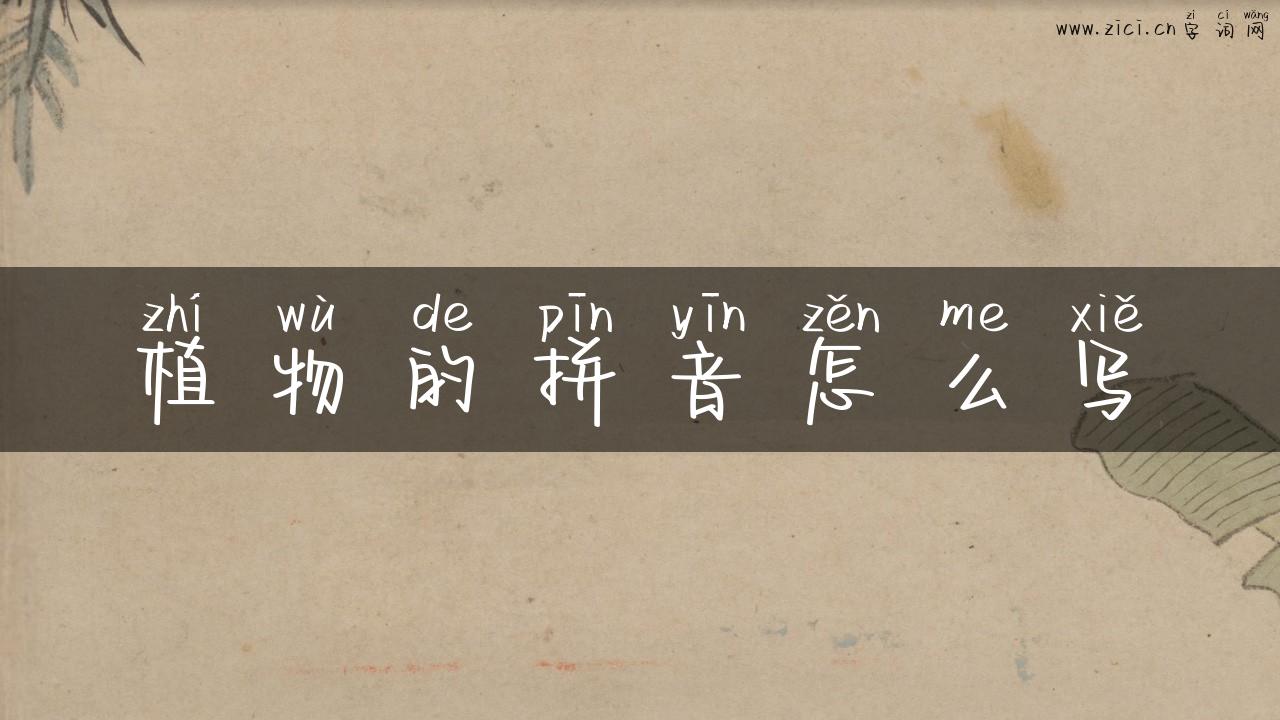 zì cí wǎng
www.zici.cn 字词网
zhí wù de pīn yīn zěn me xiě
植物的拼音怎么写